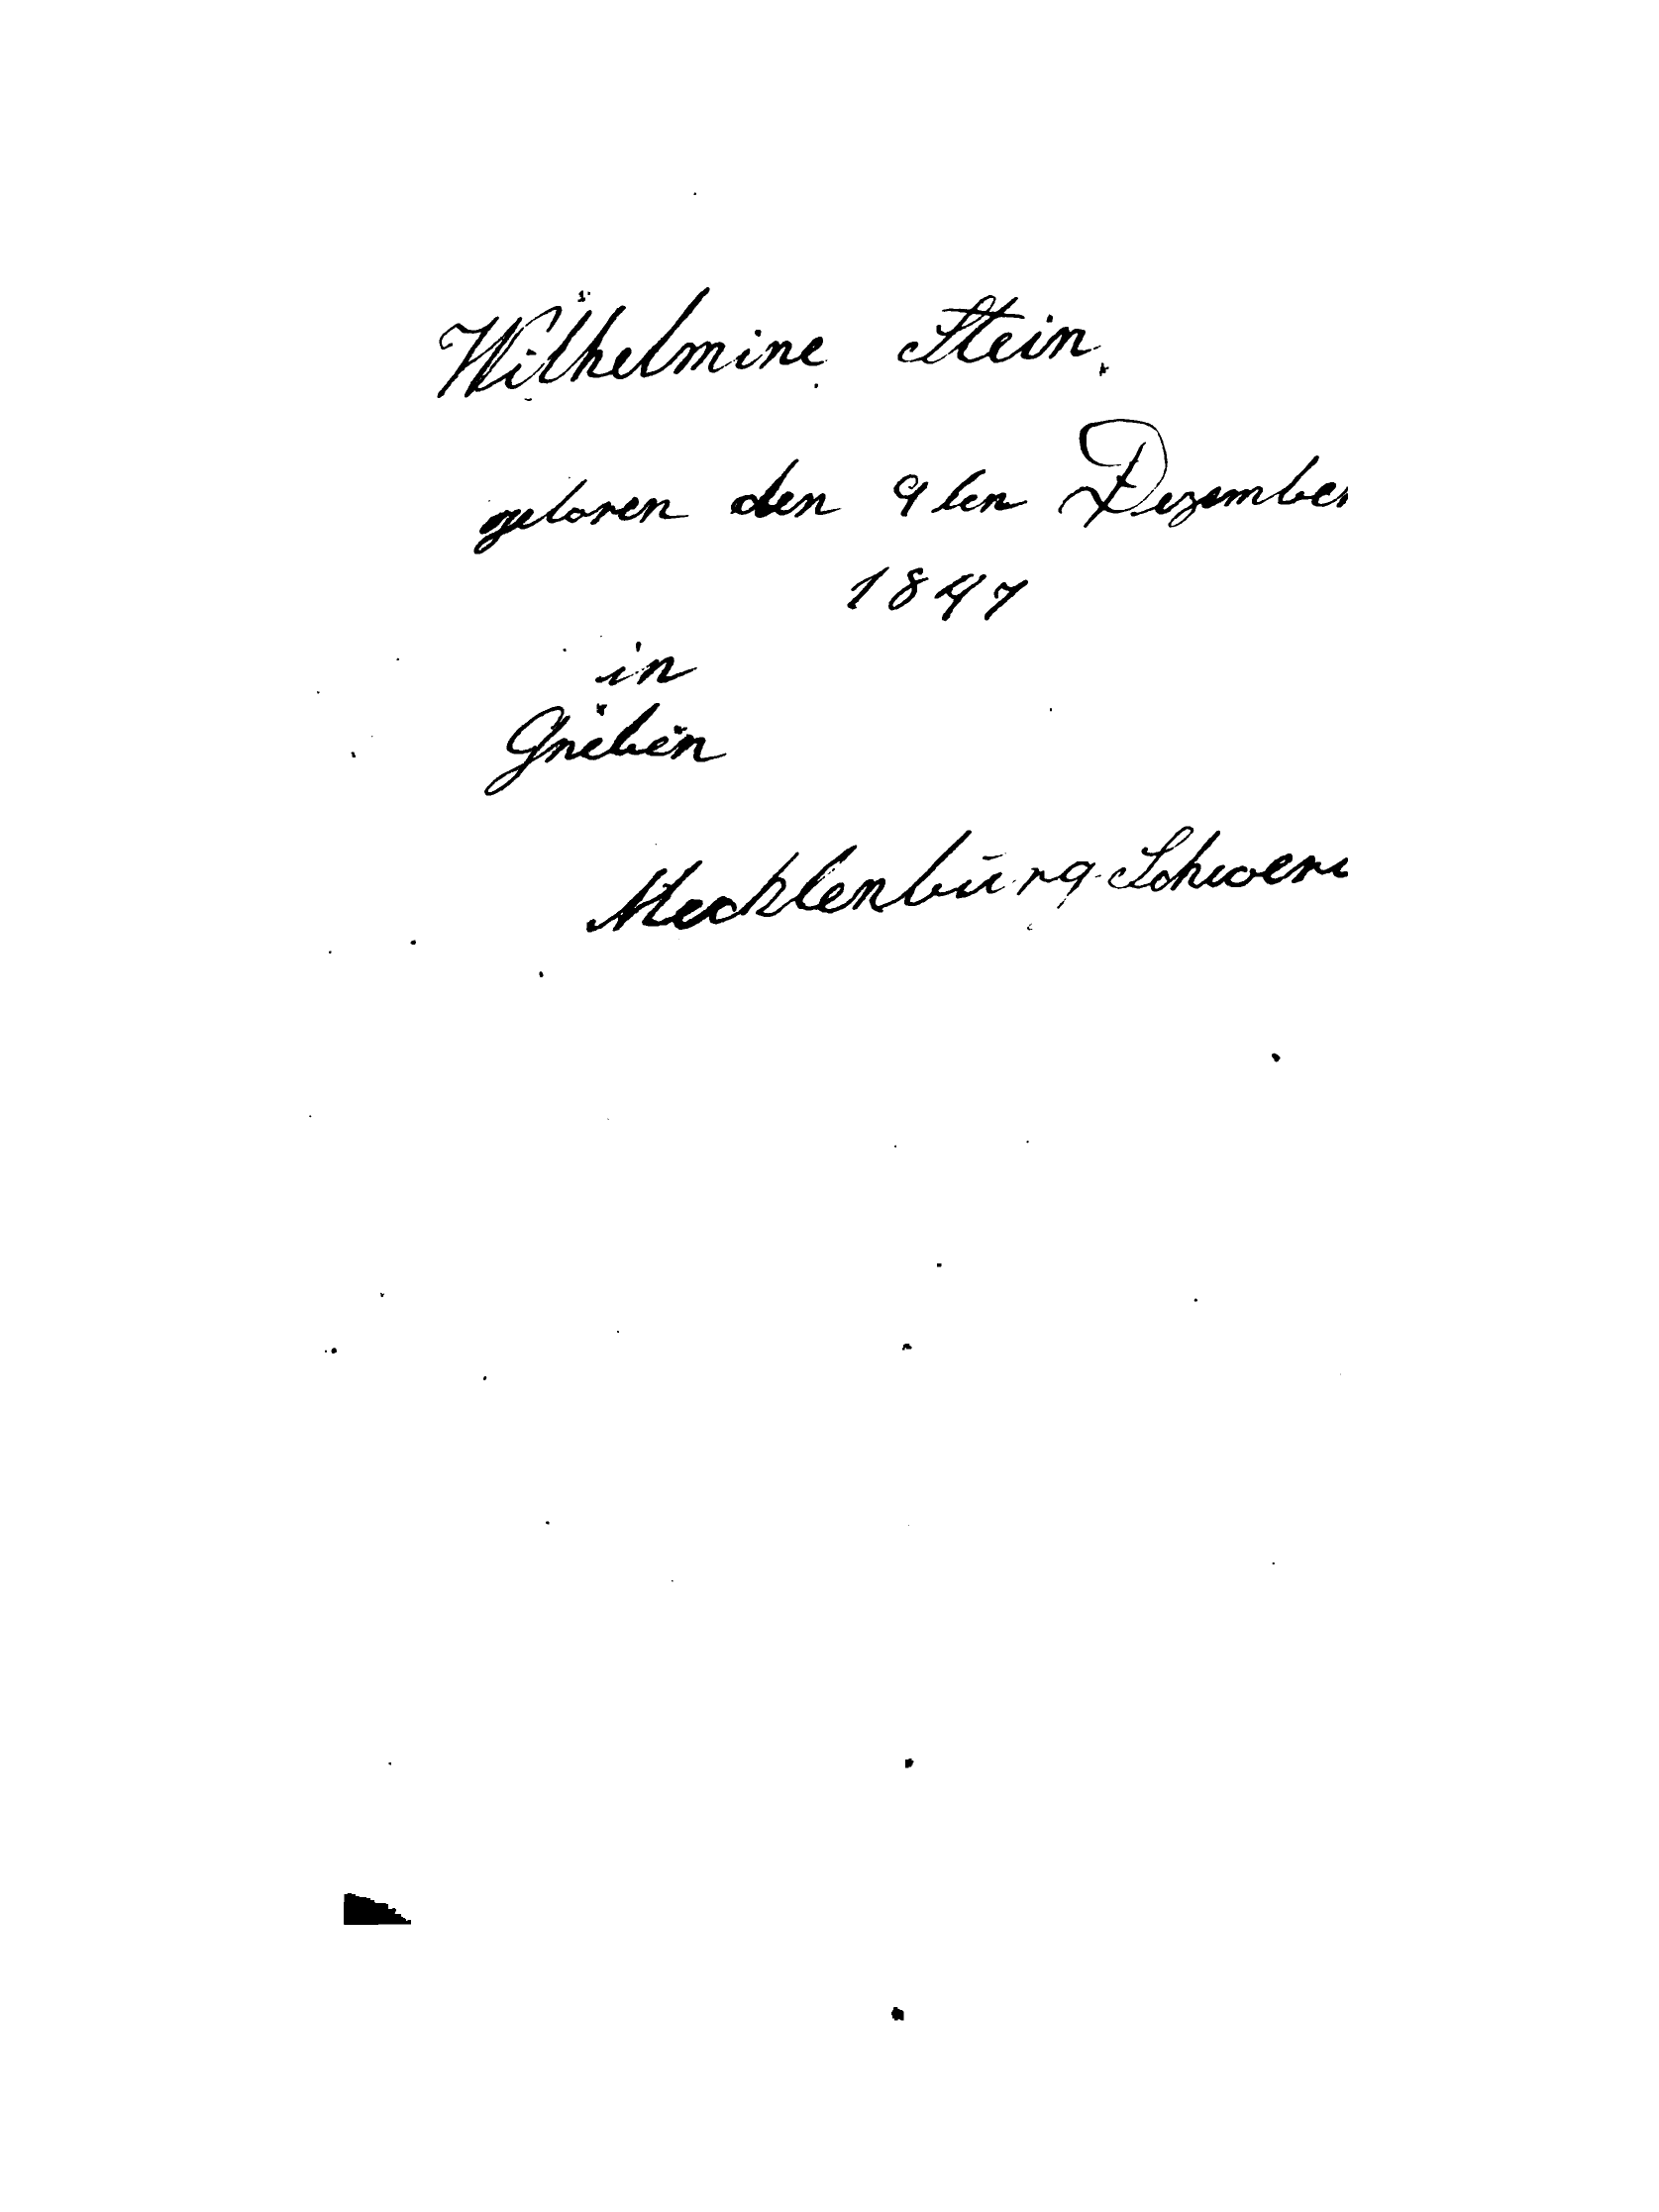 Wilhelmine Stein.
geboren den 9ten Dezember
1847
in
Grieben
Mecklenburg-Schweri